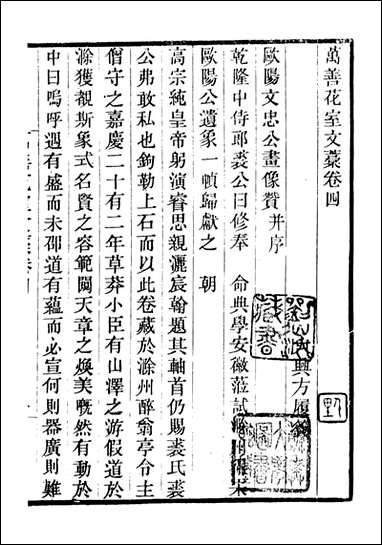 萬善花室文藁卷四
興方履
歐陽文忠公畫像贊并序
乾隆中侍郎裘公曰修奉　命典學安徽蒞試滁州得宋
歐陽公遺象一幀歸獻之　朝
高宗純皇帝躬演睿思親灑宸翰題其軸首仍賜裘氏裘
公弗敢私也鉤勒上石而以此卷藏於滁州醉翁亭令主
僧守之嘉慶二十有二年草莽小臣有山澤之游假道於
滁獲覩斯象式名賢之容範闚天章之煥美嘅然有動於
中曰嗚呼遇有盛而未卲道有蘊而必宣何則器廣則難